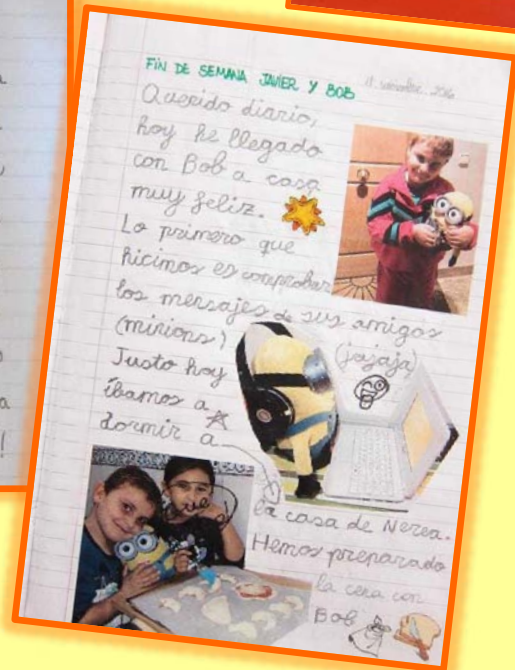 FIN DE SEMANA JAVIER Y BOB
Querido diario,
hoy he llegado
con Bob a casa
muy feliz.
Lo primero que
hicimos es comprobar
los mensajes de sus amigos
(minions)
(jajaja)
Justo hoy
íbamos a
dormir a
la casa de Nerea.
Hemos preparado
la cena con
Bob